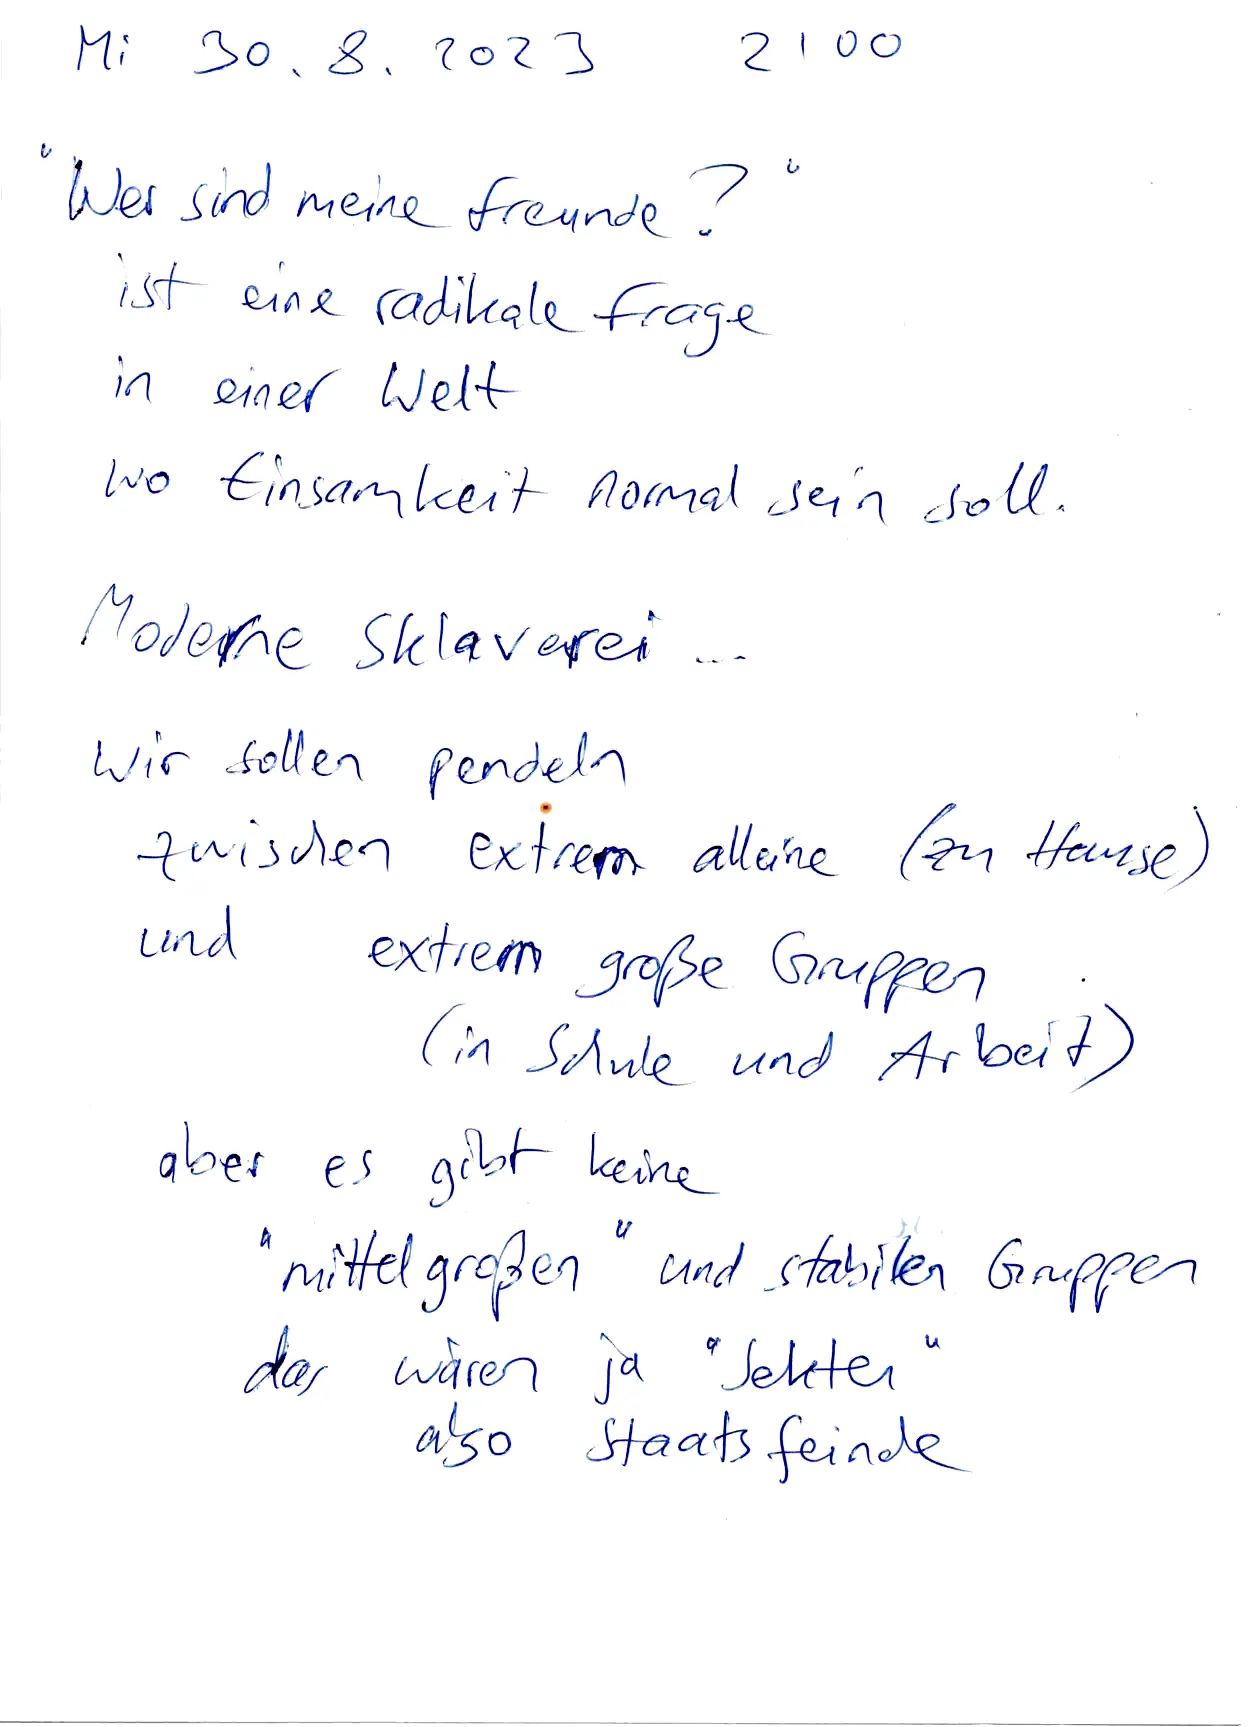 Mi 30.8.2023 2100
"Wer sind meine Freunde?"
ist eine radikale Frage
in einer Welt
wo Einsamkeit normal sein soll.
Moderne Sklaverei ...
wir sollen pendeln
zwischen extrem alleine (zu Hause)
und extrem große Gruppen
(in Schule und Arbeit)
aber es gibt keine
"mittelgroßen" und stabilen Gruppen
das wären ja "Sekten"
also Staatsfeinde